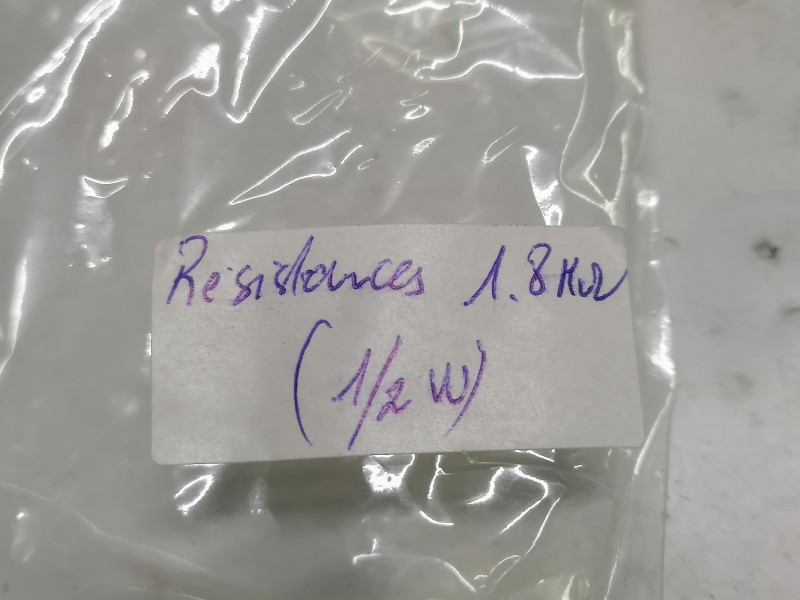 Résistances 1.8 MΩ
(1/2 W)